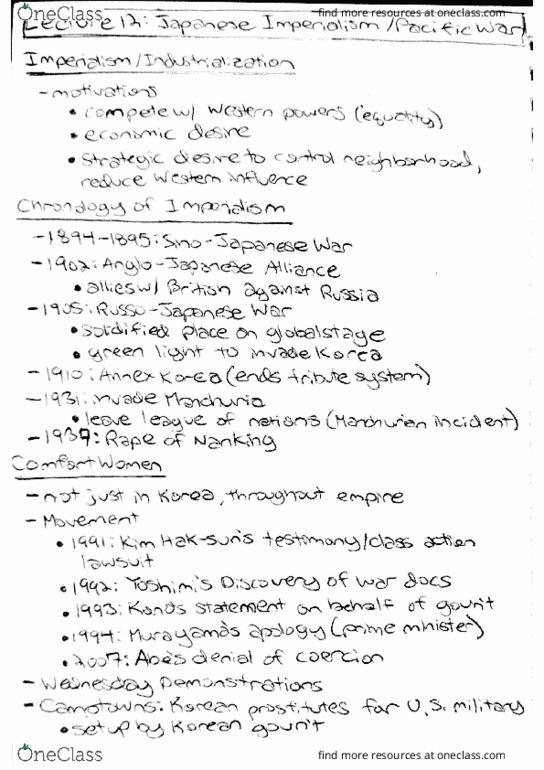 OneClass
find more resources at oneclass.com
Lecture 12: Japanese Imperialism/Pacific War
Imperialism/Industrialization
- motivations
• compete w/ Western powers (equality)
• economic desire
• strategic desire to control neighborhood,
reduce Western influence
Chronology of Imperialism
- 1894-1895: Sino-Japanese War
- 1902: Anglo-Japanese Alliance
• allies w/ British against Russia
- 1905: Russo-Japanese War
• solidified place on global stage
• green light to invade Korea
- 1910: Annex Korea (ends tribute system)
- 1931: invade Manchuria
• leave league of nations (Manchurian incident)
- 1937: Rape of Nanking
Comfort Women
- not just in Korea, throughout empire
- Movement
• 1991: Kim Hak-sun's testimony/class action
lawsuit
• 1992: Yoshimi's Discovery of war docs
• 1993: Kono's statement on behalf of gov't
• 1994: Murayama's apology (prime minister)
• 2007: Abe's denial of coercion
- Wednesday Demonstrations
- Camptowns: Korean prostitutes for U.S. military
• set up by Korean gov't
OneClass
find more resources at oneclass.com